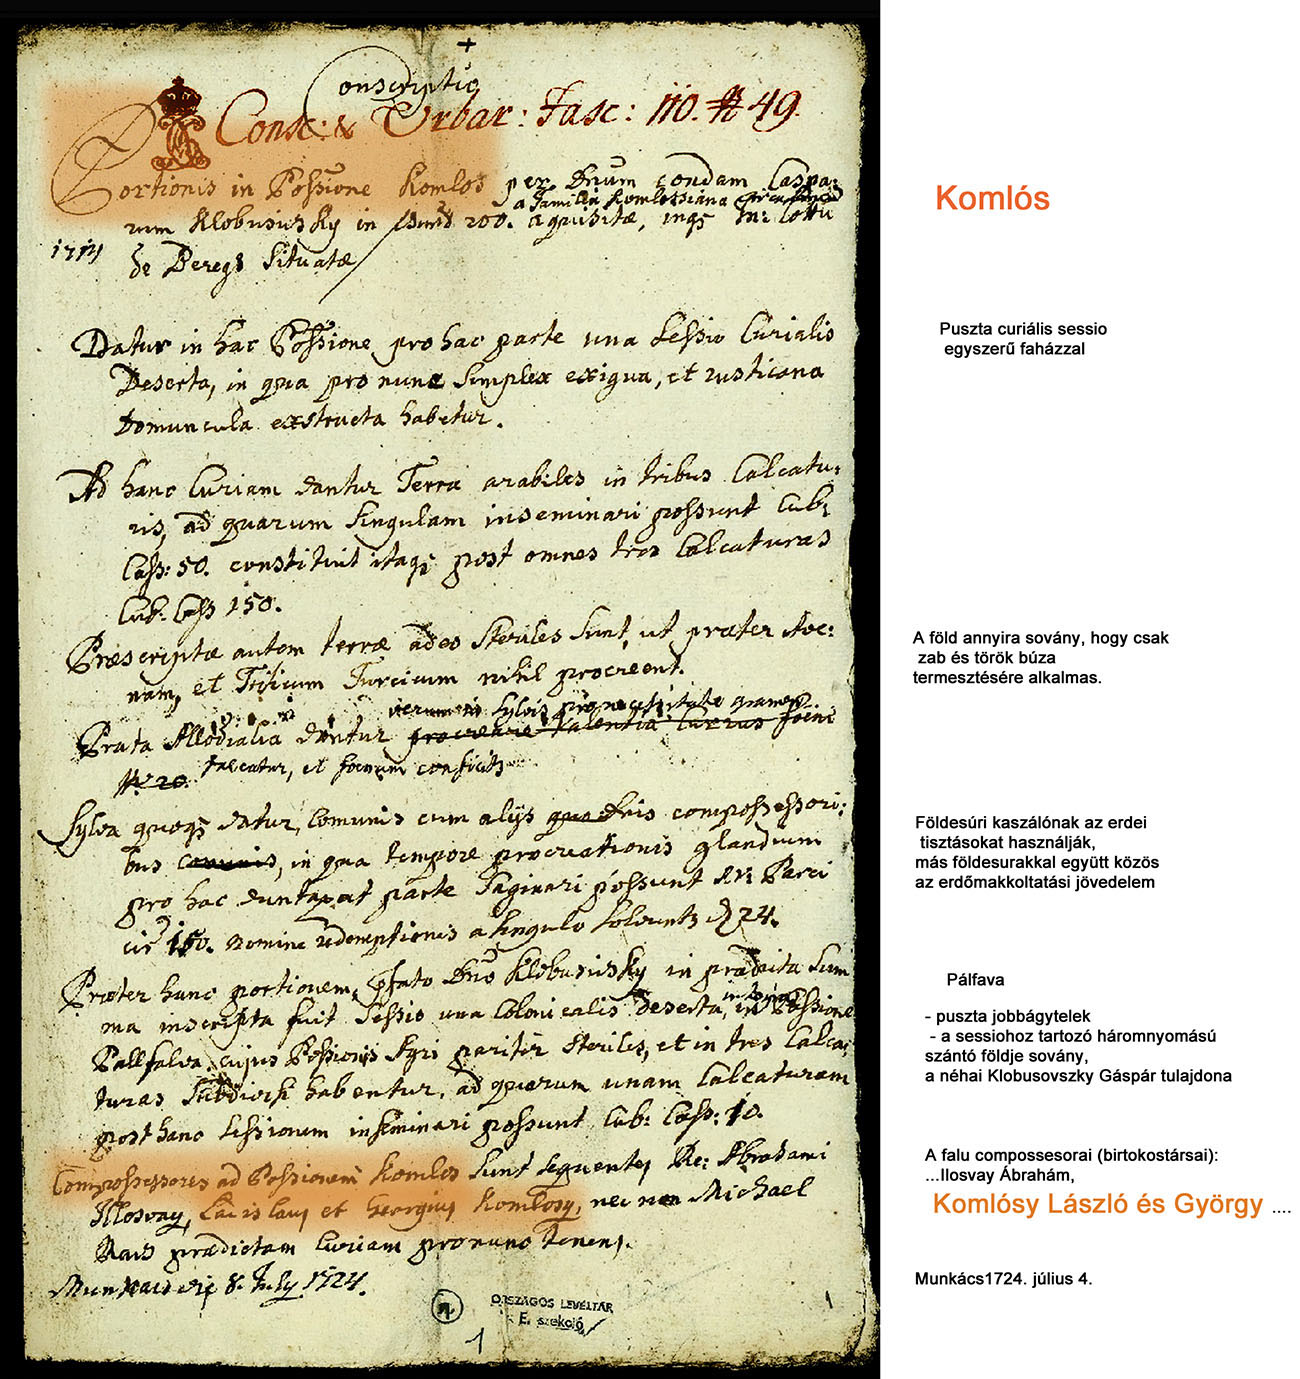 Conscriptio
Consc: & Urbar: Fasc: 110. # 49.
Portionis in Possione Komlos per Dnum condam Caspa:
a Familia Komlossiana
rum Klobusiusky in 200. aquisitæ, inqs In: Cottu
1724
de Beregh Situatæ
Datur in hac Possione pro hac parte una Sessio Curialis
Deserta, in qua pro nunc Simplex exigua, et rusticana
Domuncula exstructa habetur.
Ad hanc Curiam dantur Terræ arabiles in tribus Calcatu:
ris, ad quarum Singulam inseminari possunt Cub:
Cass: 50. constituit itaqs post omnes tres Calcaturas
Cub: Cass 150.
Præscriptæ autem terræ adeo Steriles Sunt, ut præter Ave:
nam, et Triticum Turcicum nihil procreent.
verum in Sylvis pro necessitate
Prata Allodialia dantur procreare valentia Currus foeni
Nr 20. falcatur, et foenum conficitr
Sylva quoqs datur, Comunis cum alijs compossessori:
bus comunis, in qua tempore procreationis glandium
pro hac duntaxat parte Saginari possunt Nr: Porci
cir 150. nomine redemptionis a Singulo Solvuntr d 24.
Præter hanc portionem, Pfato Dno Klobusiusky in prædicta Sum
ma inscripta fuit Sessio una Colonicalis deserta, in Possione
Pallfalva. cujus Possionis Agri pariter Steriles, et in tres Calca:
turas Subdivisi habentur, ad quarum unam Calcaturam
post hanc Sessionem inseminari possunt Cub: Cass: 10.
Compossessores ad Possionem Komlos Sunt sequentes Re: Abrahami
Illosvay, Ladislaus et Georgius Komlosy, nec non Michael
Racs prædictam Curiam pro nunc tenens.
Munkacs die 8. July 1724.
ORSZÁGOS LEVÉLTÁR
E. szekció
1
Komlós
Puszta curiális sessio
egyszerű faházzal
A föld annyira sovány, hogy csak
zab és török búza
termesztésére alkalmas.
Földesúri kaszálónak az erdei
tisztásokat használják,
más földesurakkal együtt közös
az erdőmakkoltatási jövedelem
Pálfava
- puszta jobbágytelek
- a sessiohoz tartozó háromnyomású
szántó földje sovány,
a néhai Klobusovszky Gáspár tulajdona
A falu compossesorai (birtokostársai):
...Ilosvay Ábrahám,
Komlósy László és György ....
Munkács1724. július 4.